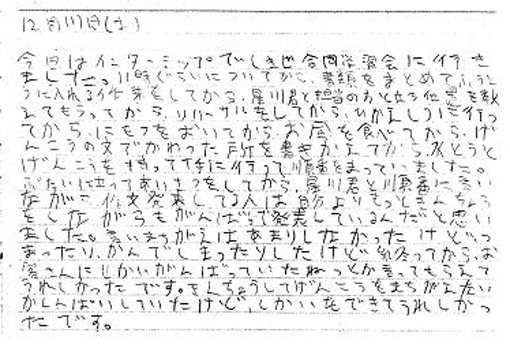 12月11日(土)
今日はインターンシップでしき世合同学習会に行き
ました。11時ぐらいについてから、書類をまとめてふうと
うに入れる仕事をしてから、星川君と担当の人と立ち位置を教
えてもらってから、リハーサルをしてから、ひかえしつに行っ
てから、にもつをおいてから、お昼を食べてから、げ
んこうの文でかわった所を書きかえてから、水とうと
げんこうを持って下に行って順番をまっていました。
ぶたいに立ってあいさつをしてから、星川君と順番に言い
ながら 作文発表してる人は自分よりもっときんちょう
をしながらもがんばって発表しているんだと思い
ました。言いまちがえはあまりしなかったけどつ
まったり、かんでしまったりしたけど終わってから、お
客さんにしかいがんばっていたねっとか言ってもらえて
うれしかったです。きんちょうしてげんこうをまちがえたい
がしんぱいしていたけど、しかいをできてうれしかっ
たです。